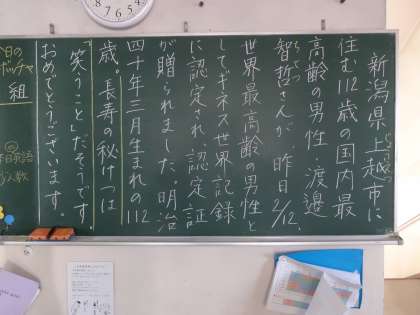 新潟県上越市に
住む112歳の国内最
高齢の男性・渡邉
智哲さんが、昨日2/12、
世界最高齢の男性と
してギネス世界記録
に認定され、認定証
が贈られました。明治
四十年三月生まれの112
歳。長寿の秘けつは
「笑うこと」だそうです。
おめでとうございます。
今日の
ボッチャ
組